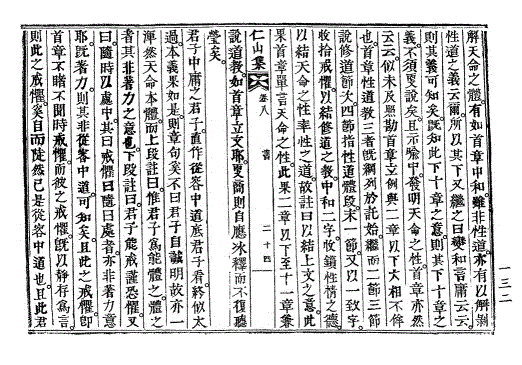 解天命之體有如首章中和雖非性道亦有以解剝
性道之義云爾所以其下又繼之曰變和言庸云云
則其義可知矣旣知此下十章之意則其下十章之
義不須更說矣且示喩中發明天命之性首章亦然
云云似未及照勘首章立例與二章以下大相不侔
也首章性道教三者旣綱列於託始繼而二節三節
說修道節次四節指性道體段末一節又以一致字
收拾戒懼以結修道之教中和二字收鎖性情之德
以結天命之性率性之道故註曰以結上文之意此
果首章單言天命之性此果二章以下至十一章兼
說道教如首章立文耶更商則自應冰釋而不復聽
瑩矣
仁山集 卷八 書 二十四
君子中庸之君子直作從容中道底君子看終似太
過本義果如是則章句奚不曰君子自誠明故亦一
渾然天命本體而上段註曰惟君子爲能體之體之
者其非著力之意也下段註曰君子能戒謹恐懼又
曰隨時以處中其曰戒懼曰隨曰處者亦非著力意
耶旣著力則其非從容中道可知矣且此之戒懼卽
首章不睹不聞時戒懼而彼之戒懼旣以靜存爲言
則此之戒懼奚自而陡然已是從容中道也且此君
一三二